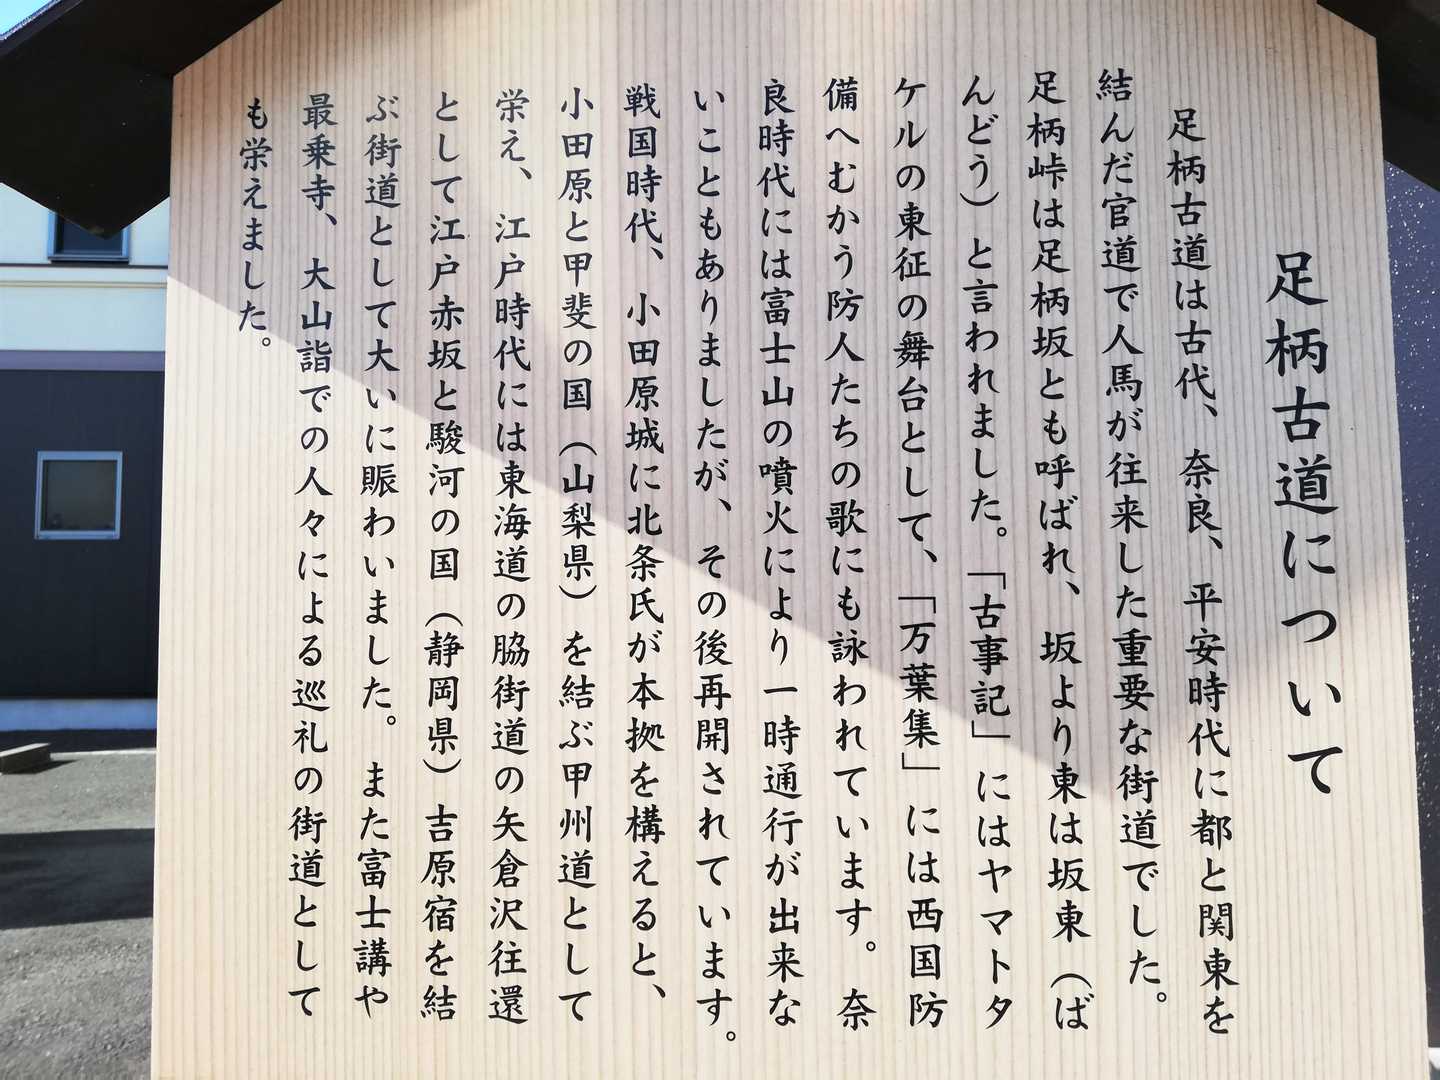 足柄古道について
足柄古道は古代、奈良、平安時代に都と関東を
結んだ官道で人馬が往来した重要な街道でした。
足柄峠は足柄坂とも呼ばれ、坂より東は坂東（ば
んどう）と言われました。「古事記」にはヤマトタ
ケルの東征の舞台として、「万葉集」には西国防
備へむかう防人たちの歌にも詠われています。奈
良時代には富士山の噴火により一時通行が出来な
いこともありましたが、その後再開されています。
戦国時代、小田原城に北条氏が本拠を構えると、
小田原と甲斐の国（山梨県）を結ぶ甲州道として
栄え、江戸時代には東海道の脇街道の矢倉沢往還
として江戸赤坂と駿河の国（静岡県）吉原宿を結
ぶ街道として大いに賑わいました。また富士講や
最乗寺、大山詣での人々による巡礼の街道として
も栄えました。